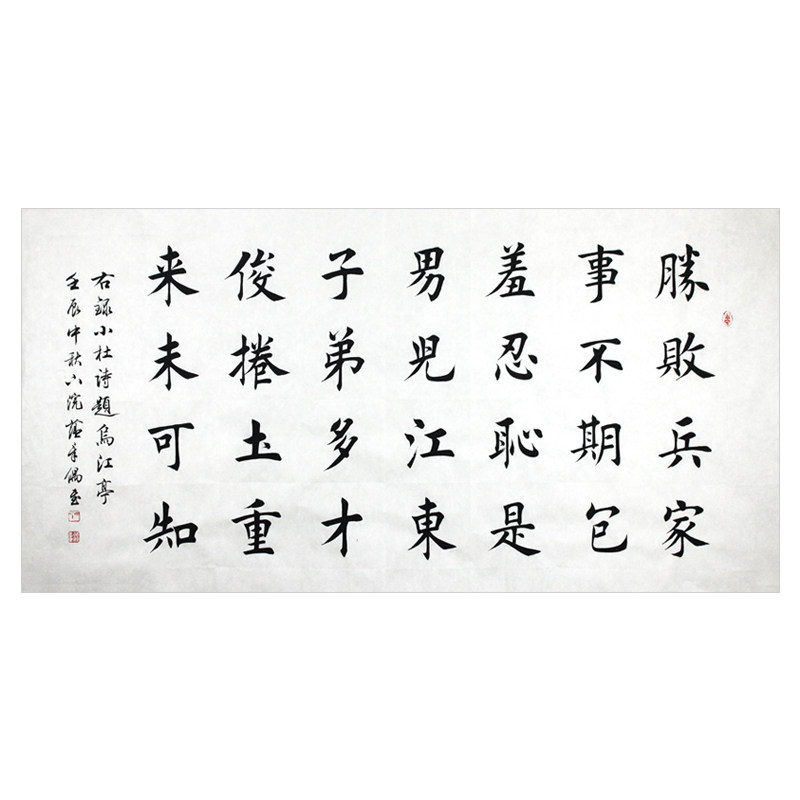 勝敗兵家
事不期包
羞忍恥是
男児江東
子弟多才
俊捲土重
来未可知
右録小杜詩題烏江亭
壬辰中秋六院